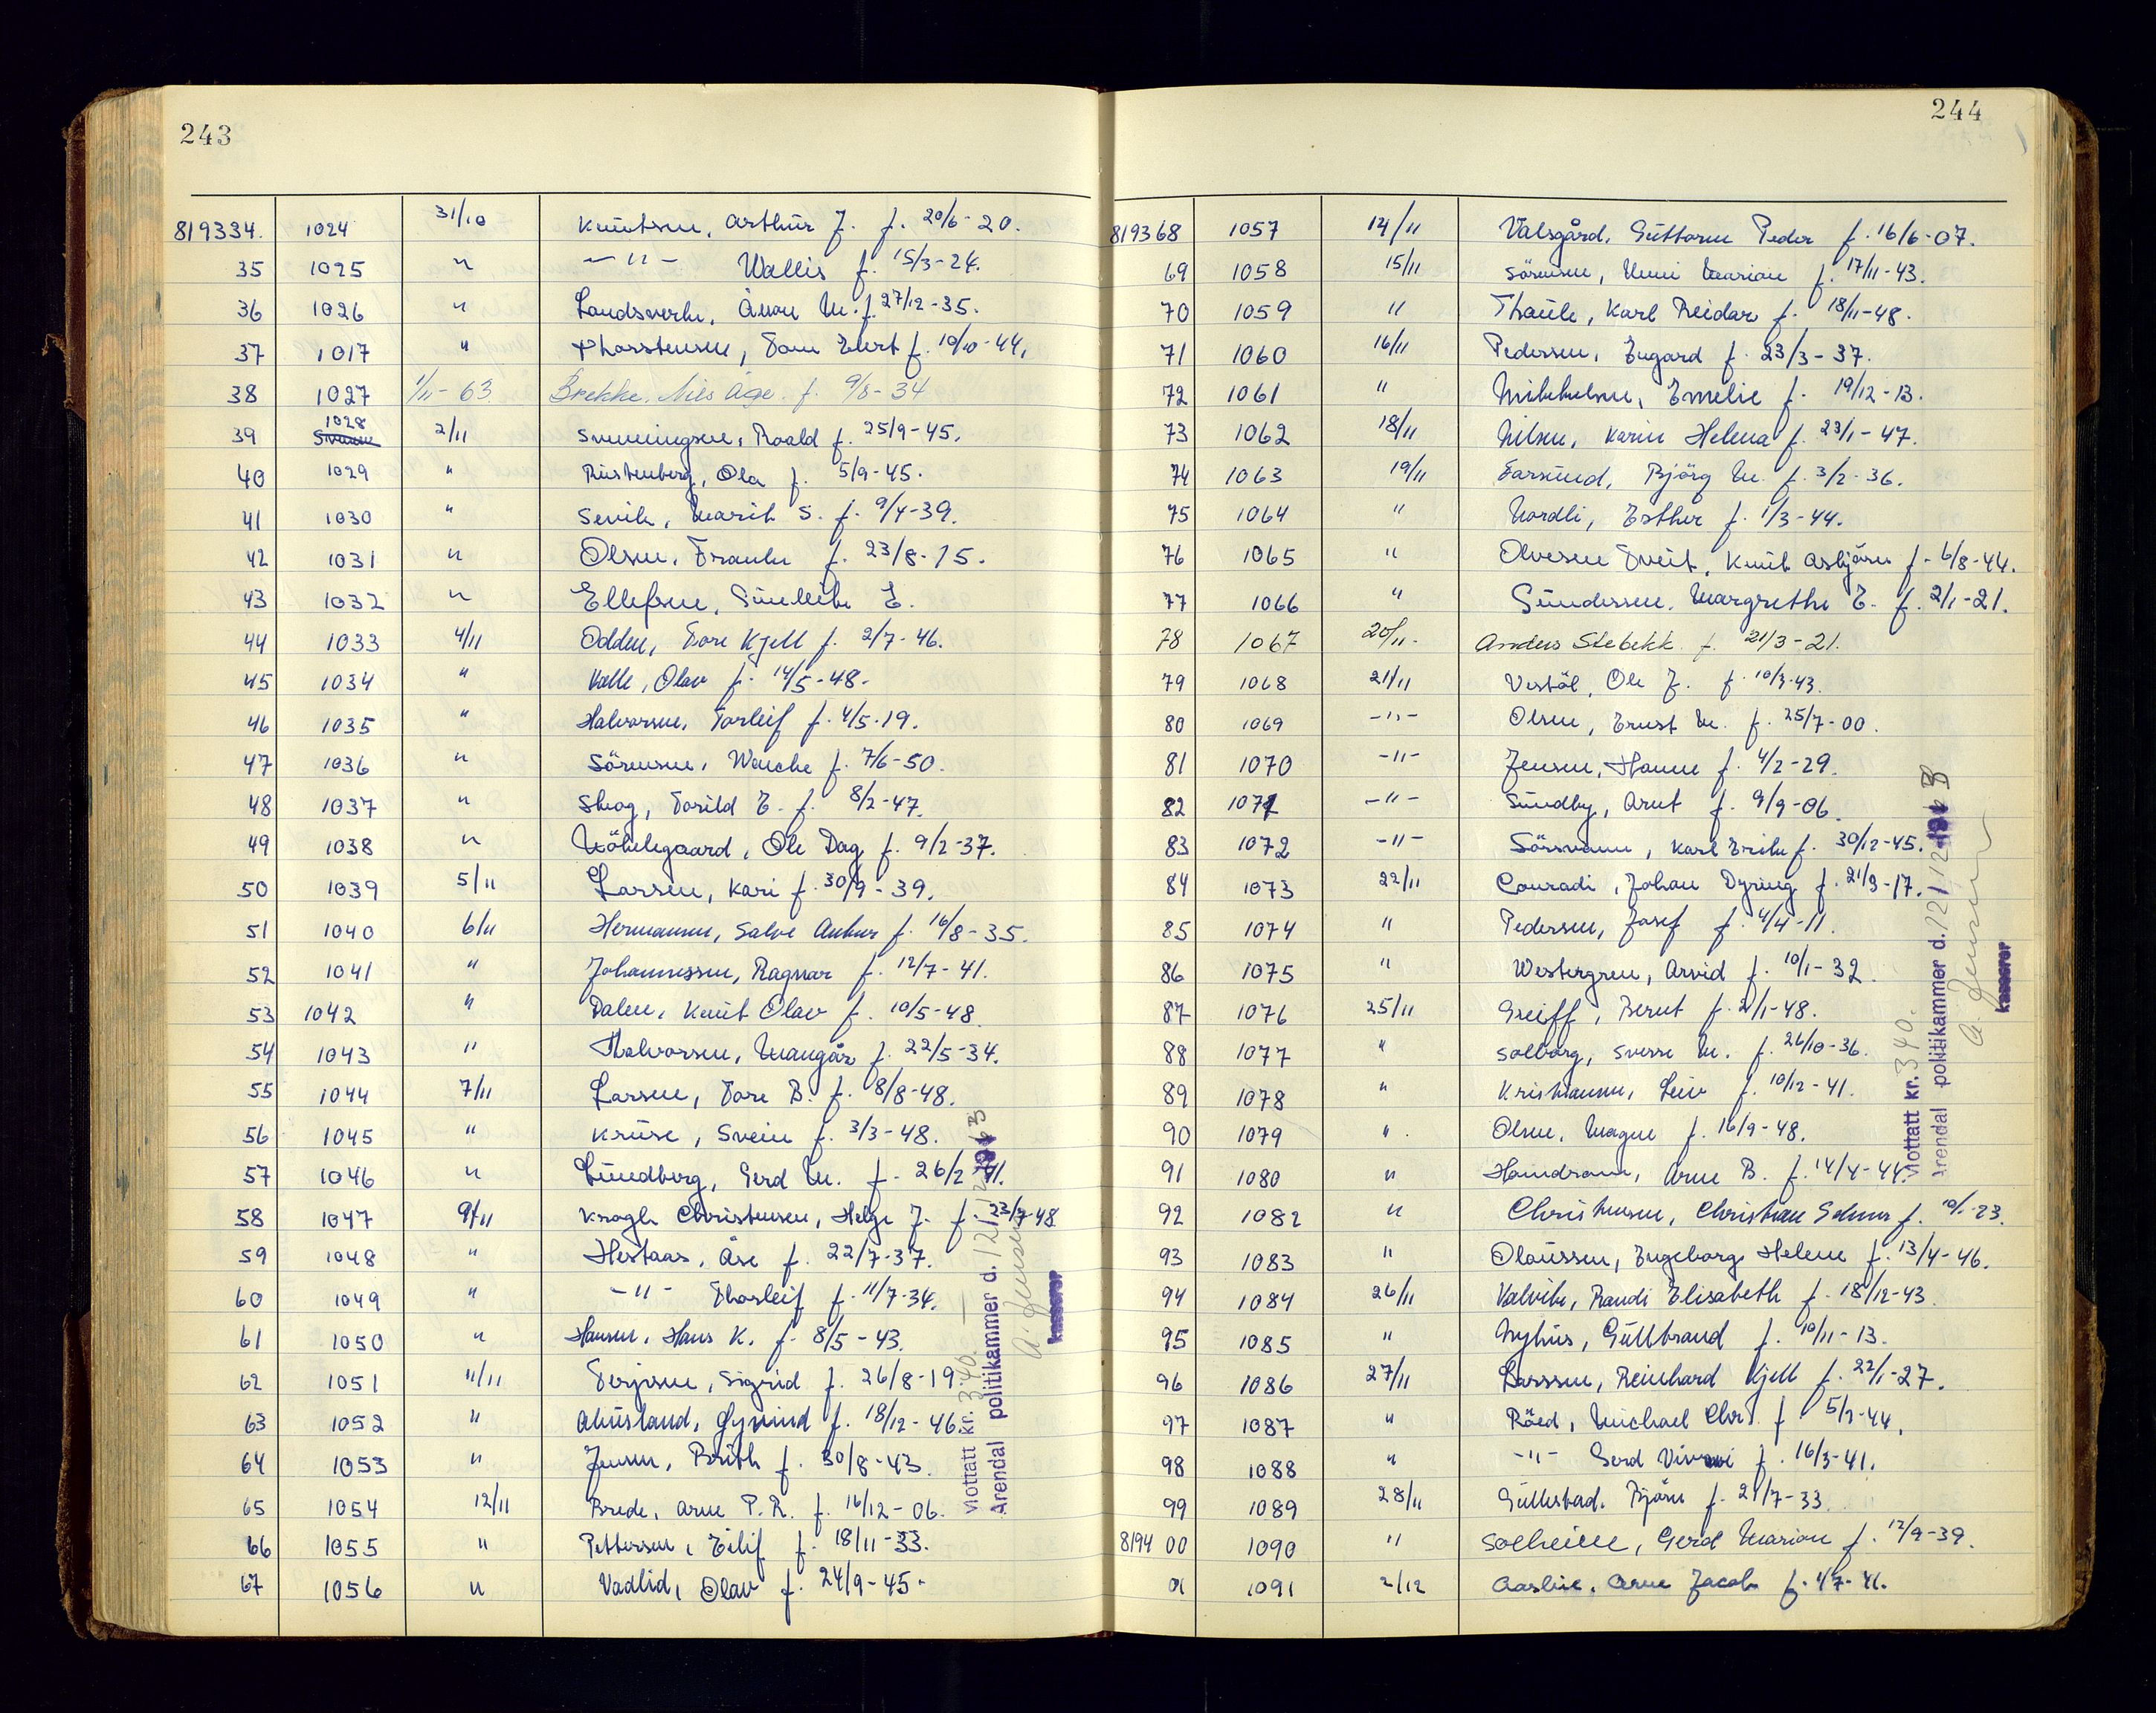 243
819334. 1024 31/10 Knutsen, Arthur J. f. 20/6-20.
35 1025 " — " — Wallis f. 15/3-24.
36 1026 " Landsverk, Ånon M. f. 27/12-35.
37 1017 " Thorstensen, Tom Evert f. 10/10-44.
38 1027 1/11-63 Brekke, Nils Åge. f. 9/8-34
39 1028 2/11 Svenningsen, Roald f. 25/9-45.
40 1029 " Rustenberg, Ola f. 5/9-45.
41 1030 " Sevik, Marit S. f. 9/4-39.
42 1031 " Olsen, Frank f. 23/8-15.
43 1032 " Ellefsen, E.
44 1033 4/11 Odden, Tore Kjell f. 2/7-46.
45 1034 " Valle, Olav f. 14/5-48.
46 1035 " Halvorsen, Torleif f. 4/5-19.
47 1036 " Sörensen, Wenche f. 7/6-50.
48 1037 " Skog, Torild E. f. 8/2-47.
49 1038 " Ole Dag f. 9/2-37.
50 1039 5/11 Larsen, Kari f. 30/9-39.
51 1040 6/11 Hermansen, Salve Anker f. 16/8-35.
52 1041 " Johannessen, Ragnar f. 12/7-41.
53 1042 " Dalen, Knut Olav f. 10/5-48.
54 1043 " Halvorsen, Mangår f. 22/5-34.
55 1044 7/11 Larsen, Tore B. f. 8/8-48.
56 1045 " Kruse, Svein f. 3/3-48.
57 1046 " Lundberg, Gerd M. f. 26/2-41.
58 1047 9/11 Krogh Christensen, Helge J. f. 23/7-48
59 1048 " Hestaas, Åse f. 22/7-37.
60 1049 " — " — Thorleif f. 11/7-34.
61 1050 " Hansen, Hans K. f. 8/5-43.
62 1051 11/11 Terjesen, Sigrid f. 26/8-19.
63 1052 " Åkusland, Øyvind f. 18/12-46.
64 1053 " Jensen, Brith f. 30/8-43.
65 1054 12/11 Brede, Arne P.R. f. 16/12-06.
66 1055 " Pettersen, Eilif f. 18/11-33.
67 1056 " Vadlid, Olav f. 24/9-45.
Mottatt kr. 340.—
Arendal politikammer d. 12/12 1963
A. Jensen
kasserer
244
819368 1057 14/11 Valsgård, Guttorm Peder f. 16/6-07.
69 1058 15/11 Sörensen, Unni Marion f. 17/11-43.
70 1059 " Thaule, Karl Reidar f. 18/11-48.
71 1060 16/11 Pedersen, Engard f. 23/3-37.
72 1061 " Mikkelsen, Emelie f. 19/12-13.
73 1062 18/11 Nilsen, Karin Helena f. 23/1-47.
74 1063 19/11 Farsund, Bjørg M. f. 3/2-36.
75 1064 " Nordli, Esther f. 1/3-44.
76 1065 " Olvesen Tveit, Knut Asbjørn f. 6/8-44.
77 1066 " Gundersen, Margrethe E. f. 2/1-21.
78 1067 20/11. Anders Stebekk f. 21/3-21.
79 1068 21/11 Vestøl, Ole J. f. 10/3-43.
80 1069 — " — Olsen, Ernst M. f. 25/7-00.
81 1070 — " — Jensen, Hanne f. 4/2-29.
82 1071 — " — Sundby, Arnt f. 9/9-06.
83 1072 — " — Sörsvann, Karl Erik f. 30/12-45.
84 1073 22/11 Conradi, Johan Dyring f. 21/3-17.
85 1074 " Pedersen, Josef f. 4/4-11.
86 1075 " Westergren, Arvid f. 10/1-32.
87 1076 25/11 Greiff, Bernt f. 2/1-48.
88 1077 " Solborg, Sverre M. f. 26/10-36.
89 1078 " Kristiansen, Leiv f. 10/12-41.
90 1079 " Olsen, Magne f. 16/9-48.
91 1080 " Haudrom, Arne B. f. 14/4-44.
92 1082 " Christensen, Christian Selmer f. -23.
93 1083 " Olaussen, Ingeborg Helene f. 13/4-46.
94 1084 26/11 Valvik, Randi Elisabeth f. 18/12-43.
95 1085 " Nyhus, Gullbrand f. 10/11-13.
96 1086 27/11 Larssen, Reinhard Kjell f. 22/1-27.
97 1087 " Röed, Michael Chr. f. 5/3-44.
98 1088 " — " — Gerd Vivevi f. 16/3-41.
99 1089 28/11 Gullestad, Bjørn f. 21/7-33.
819400 1090 " Solheim, Gerd Marion f. 12/9-39.
01 1091 2/12 Aaslie, Arne Jacob f. 4/7-41.
Mottatt kr. 340.
Arendal politikammer d. 12/12 1963
A. Jensen
kasserer